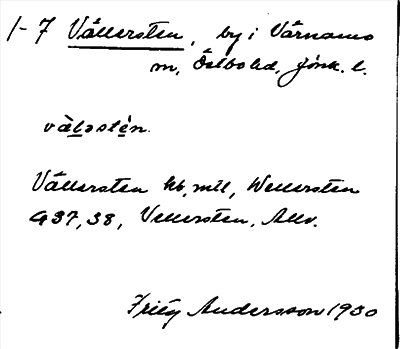 1-7 Vällersten, by i Värnamo
m, Östbo hd, Jönk. l.
vàlərstèn.
Vällersten kb, mtl, Wellersten
G37, 38, Vellersten, Allv.
Fritz Andersson 1930